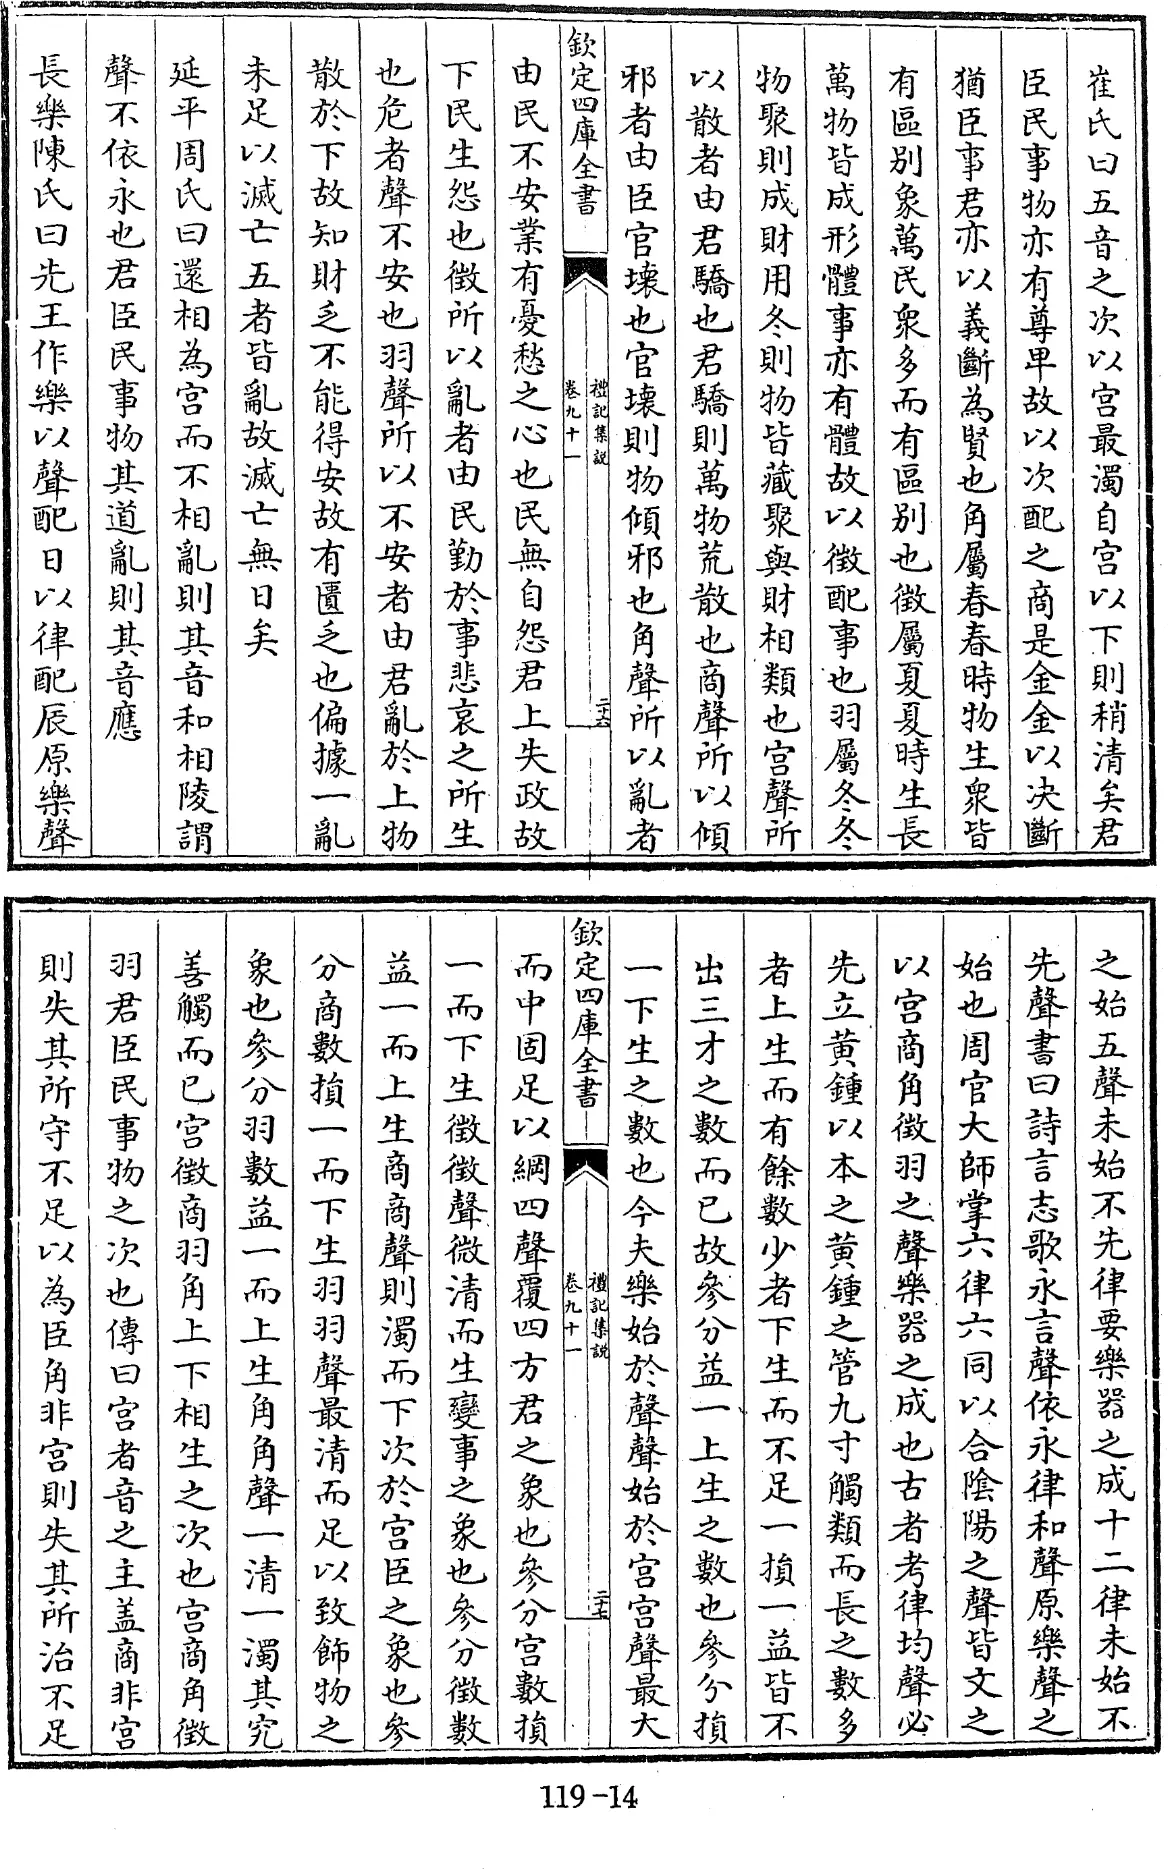 崔氏曰五音之次以宫最濁自宫以下則稍清矣君
臣民事物亦有尊卑故以次配之商是金金以决斷
猶臣事君亦以義斷為賢也角屬春春時物生衆皆
有區别象萬民衆多而有區别也徴屬夏夏時生長
萬物皆成形體事亦有體故以徴配事也羽屬冬冬
物聚則成財用冬則物皆藏聚與財相類也宫聲所
以散者由君驕也君驕則萬物荒散也商聲所以傾
邪者由臣官壊也官壊則物傾邪也角聲所以亂者
欽定四庫全書
禮記集説
卷九十一
二十六
由民不安業有憂愁之心也民無自怨君上失政故
下民生怨也徴所以亂者由民勤於事悲哀之所生
也危者聲不安也羽聲所以不安者由君亂於上物
散於下故知財乏不能得安故有匱乏也偏據一亂
未足以滅亡五者皆亂故滅亡無日矣
延平周氏曰還相為宫而不相亂則其音和相陵謂
聲不依永也君臣民事物其道亂則其音應
長樂陳氏曰先王作樂以聲配日以律配辰原樂聲
之始五聲未始不先律要樂器之成十二律未始不
先聲書曰詩言志歌永言聲依永律和聲原樂聲之
始也周官大師掌六律六同以合陰陽之聲皆文之
以宫商角徴羽之聲樂器之成也古者考律均聲必
先立黄鍾以本之黄鍾之管九寸觸類而長之數多
者上生而有餘數少者下生而不足一損一益皆不
出三才之數而已故參分益一上生之數也參分損
一下生之數也今夫樂始於聲聲始於宫宫聲最大
欽定四庫全書
禮記集説
卷九十一
二十七
而中固足以綱四聲覆四方君之象也參分宫數損
一而下生徴徴聲微清而生變事之象也參分徴數
益一而上生商商聲則濁而下次於宫臣之象也參
分商數損一而下生羽羽聲最清而足以致飾物之
象也參分羽數益一而上生角角聲一清一濁其究
善觸而已宫徴商羽角上下相生之次也宫商角徴
羽君臣民事物之次也傳曰宫者音之主盖商非宫
則失其所守不足以為臣角非宫則失其所治不足
119-14